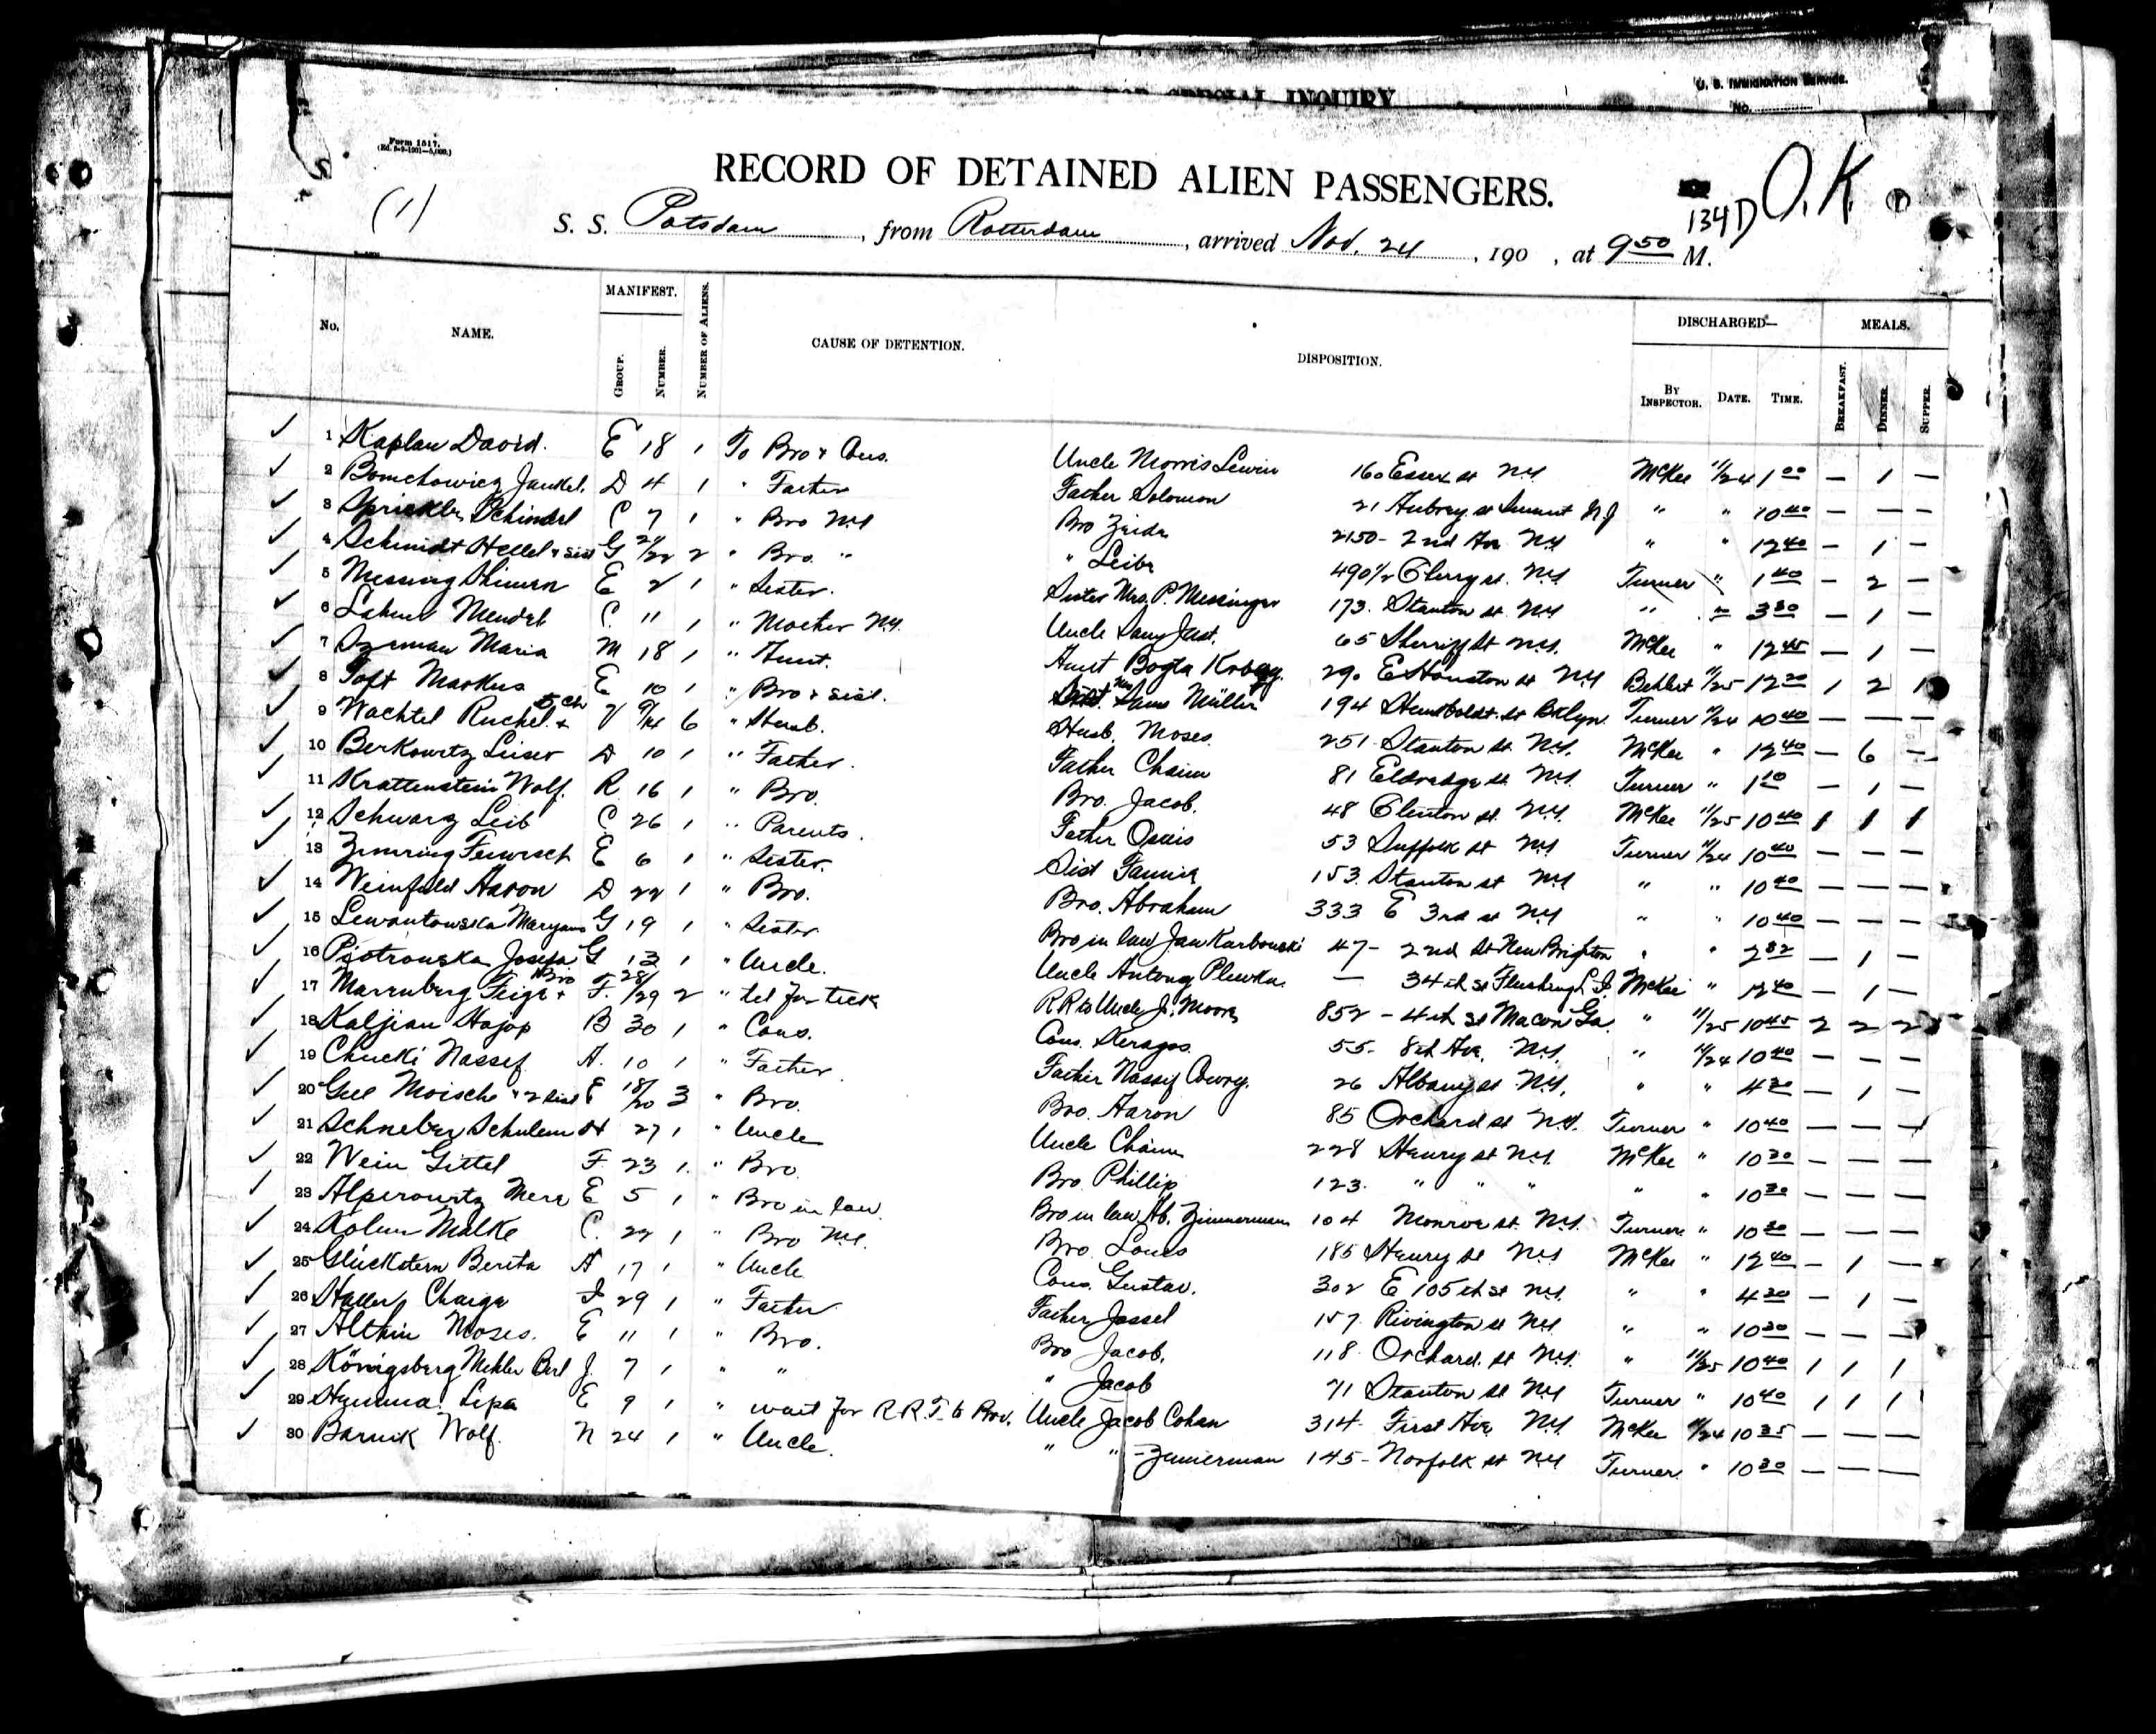 FOR SPECIAL INQUIRY
U. S. IMMIGRATION SERVICE.
No.
Form 1517.
(1)
RECORD OF DETAINED ALIEN PASSENGERS.
134 D O.K.
S. S. Potsdam, from Rotterdam, arrived Nov. 24, 190 , at 9 50 M.
No. NAME. MANIFEST. GROUP. NUMBER. NUMBER OF ALIENS. CAUSE OF DETENTION. DISPOSITION. DISCHARGED— BY INSPECTOR. DATE. TIME. MEALS. BREAKFAST. DINNER. SUPPER.
1 Kaplan David. E 18 1 To Bro & Cous. Uncle Morris Lewin 160 Essex st NY McKee 11/24 1 00 — 1 —
2 Bomchowicz Jankel. D 4 1 " Father Father Solomon 21 Aubrey st Summit N.J " " 10 40 — — —
3 Schindel C 7 1 " Bro NY Bro 2150 - 2nd Ave NY " " 12 40 — 1 —
4 Schmidt Hellel & sist G 21/22 2 " Bro. " " Leibe 490 1/2 Cherry st. NY Turner " 1 40 — 2 —
5 Messing E 2 1 " Sister. Sister Mrs. P. Messinger 173. Stanton st. NY " " 3 30 — 1 —
6 Mendel C. 11 1 " Mother NY. Uncle Sam 65 Sheriff st NY. McKee " 12 45 — 1 —
7 Maria M 18 1 " Aunt. Aunt 290 E Houston st NY 11/25 12 20 1 2 1
8 Toft Markus E 10 1 " Bro & sist. Müller 194 Humboldt st Bklyn. Turner 11/24 10 40 — — —
9 Wachtel Ruchel. & 5 ch V 9/14 6 " Husb. Husb. Moses 251 Stanton st. NY. McKee " 12 40 — 6 —
10 Berkowitz Leiser D 10 1 " Father. Father Chaim 81 Eldredge st NY. Turner " 1 10 — 1 —
11 Krattenstein Wolf. R 16 1 " Bro. Bro. Jacob. 48 Clinton st. NY. McKee 11/25 10 40 1 1 1
12 Schwarz Leib C 26 1 " Parents. Father 53 Suffolk st NY Turner 11/24 10 40 — — —
13 E 6 1 " Sister. Sist Fannie 153. Stanton st NY " " 10 40 — — —
14 Weinfeld Aaron D 22 1 " Bro. Bro. Abraham 333 E 3rd st NY " " 10 40 — — —
15 Lewantowska Maryana G 19 1 " Sister Bro in law Jan Karbowski 47 - 2nd St New Brighton " " — 1 —
16 Piotrowska Josefa G 13 1 " Uncle. Uncle Antony Plewka — 34th st Flushing L.I. McKee " 12 40 — 1 —
17 Feige & Bro F. 28/29 2 " tel for tick R R to Uncle J. Moore 852 - 4th st Macon Ga. " 11/25 10 45 2 2 2
18 Kaljian Hajop B 30 1 " Cous. Cous. 55 - 8th Ave. NY. " 11/24 10 40 — — —
19 Chucki Nassef A. 10 1 " Father. Father Nassif 26 Albany st NY. " " 4 30 — 1 —
20 Moische & 2 sist E 18/20 3 " Bro. Bro. Aaron 85 Orchard st NY. Turner " 10 40 — — —
21 Schneber Schulem H 27 1 " Uncle Uncle Chaim 228 Henry st NY. McKee " 10 30 — — —
22 Wein Gittel F 23 1. " Bro. Bro. Phillip 123. " " " " " 10 30 — — —
23 Alperowitz Mere E 5 1 " Bro in law. Bro in law Ab. Zimmerman 104 Monroe st. NY. Turner " 10 30 — — —
24 Malke C. 22 1 " Bro NY. Bro. Louis 185 Henry st NY McKee " 12 40 — 1 —
25 Glückstern Berita A 17 1 " Uncle Cous. Gustav. 302 E 105th st NY. " " 4 30 — 1 —
26 Haller Chaige I 29 1 " Father Father Jossel 157 Rivington st NY " " 10 30 — — —
27 Moses. E 11 1 " Bro. Bro Jacob. 118 Orchard. st NY. " 11/25 10 40 1 1 1
28 Königsberg Mekler Berl J. 7 1 " " " Jacob 71 Stanton st NY Turner " 10 40 1 1 1
29 Lipa E 9 1 " wait for R.R.T. to Prov. Uncle Jacob Cohen 314 - First Ave. NY. McKee 11/24 10 35 — — —
30 Barnik Wolf. N 24 1 " Uncle. " " - Zimerman 145 - Norfolk st NY Turner. " 10 30 — — —